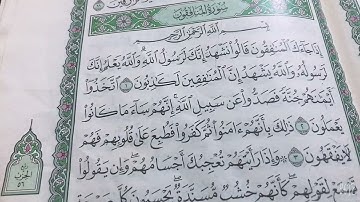 سُورَةُ المُنَافِقُونَ
بِسْمِ اللَّهِ الرَّحْمَٰنِ الرَّحِيمِ
إِذَا جَاءَكَ الْمُنَافِقُونَ قَالُوا نَشْهَدُ إِنَّكَ لَرَسُولُ اللَّهِ وَاللَّهُ يَعْلَمُ إِنَّكَ
لَرَسُولُهُ وَاللَّهُ يَشْهَدُ إِنَّ الْمُنَافِقِينَ لَكَاذِبُونَ ١ اتَّخَذُوا
أَيْمَانَهُمْ جُنَّةً فَصَدُّوا عَن سَبِيلِ اللَّهِ إِنَّهُمْ سَاءَ مَا كَانُوا
يَعْمَلُونَ ٢ ذَٰلِكَ بِأَنَّهُمْ آمَنُوا ثُمَّ كَفَرُوا فَطُبِعَ عَلَىٰ قُلُوبِهِمْ فَهُمْ
لَا يَفْقَهُونَ ٣ وَإِذَا رَأَيْتَهُمْ تُعْجِبُكَ أَجْسَامُهُمْ وَإِن يَقُولُوا
تَسْمَعْ لِقَوْلِهِمْ كَأَنَّهُمْ خُشُبٌ مُّسَنَّدَةٌ يَحْسَبُونَ كُلَّ